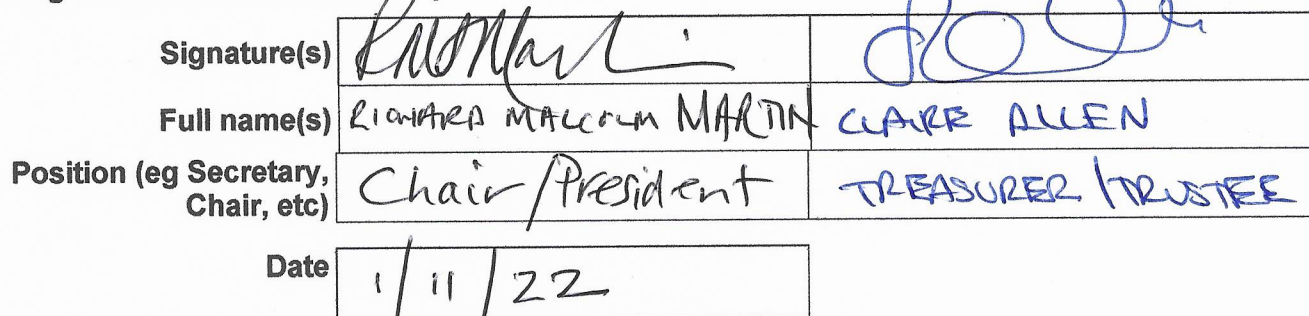 Signature(s)
Full name(s) RICHARD MALCOLM MARTIN CLAIRE ALLEN
Position (eg Secretary, Chair/President TREASURER/TRUSTEE
Chair, etc)
Date 1/11/22